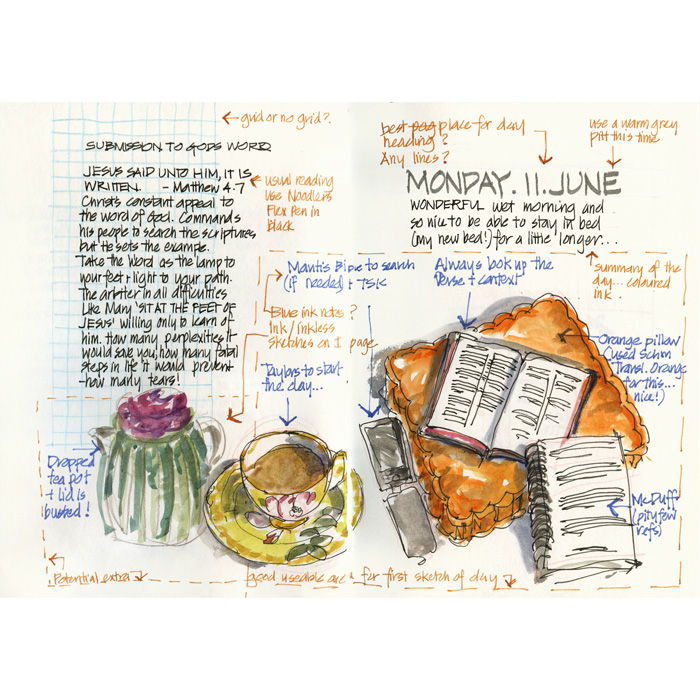 grid or no grid?
SUBMISSION TO GODS WORD
JESUS SAID UNTO HIM, IT IS
WRITTEN. - Matthew 4.7
Christs constant appeal to
the word of God. Commands
his people to search the scriptures
but He sets the example.
Take the Word as the lamp to
your feet + light to your path.
The arbiter in all difficulties
Like Mary 'SIT AT THE FEET OF
JESUS' willing only to learn of
him. How many perplexities it
would save you; how many fatal
steps in life it would prevent
-how many tears!
usual reading
use Noodlers
Flex Pen in
Black
Mantis Bible to search
(if needed) + TSK
Blue ink notes?
Ink/inkless
sketches on 1 page
Taylors to start
the day...
Dropped
tea pot
+ lid is
busted!
Potential extra
good useable area for first sketch of day
best pag place for day
heading?
Any lines?
use a warm grey
pitt this time
MONDAY. 11. JUNE
WONDERFUL wet morning and
so nice to be able to stay in bed
(my new bed!) for a little longer...
summary of the
day... coloured
ink.
Always look up the
verse + context
Orange pillow
(used Schm
Transl. Orange
for this...
nice!)
McDuff
(pity few
refs)